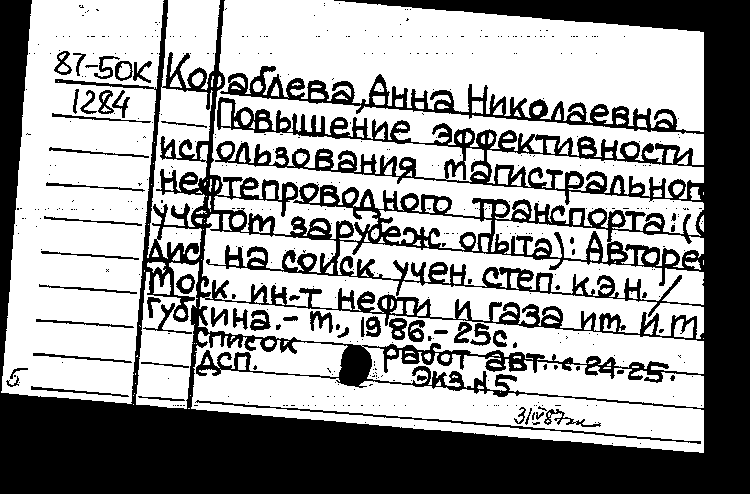 87-50К
1284
Кораблева, Анна Николаевна
Повышение эффективности
использования магистрального
нефтепроводного транспорта: (С
учетом зарубеж. опыта): Авторе
дис. на соиск. учен. степ. к.э.н. /
Моск. ин-т нефти и газа им. И.М.
Губкина. - М., 1986. - 25с.
Список работ авт.: с. 24-25.
ДСП. Экз. N 5.
Б
3/IV87